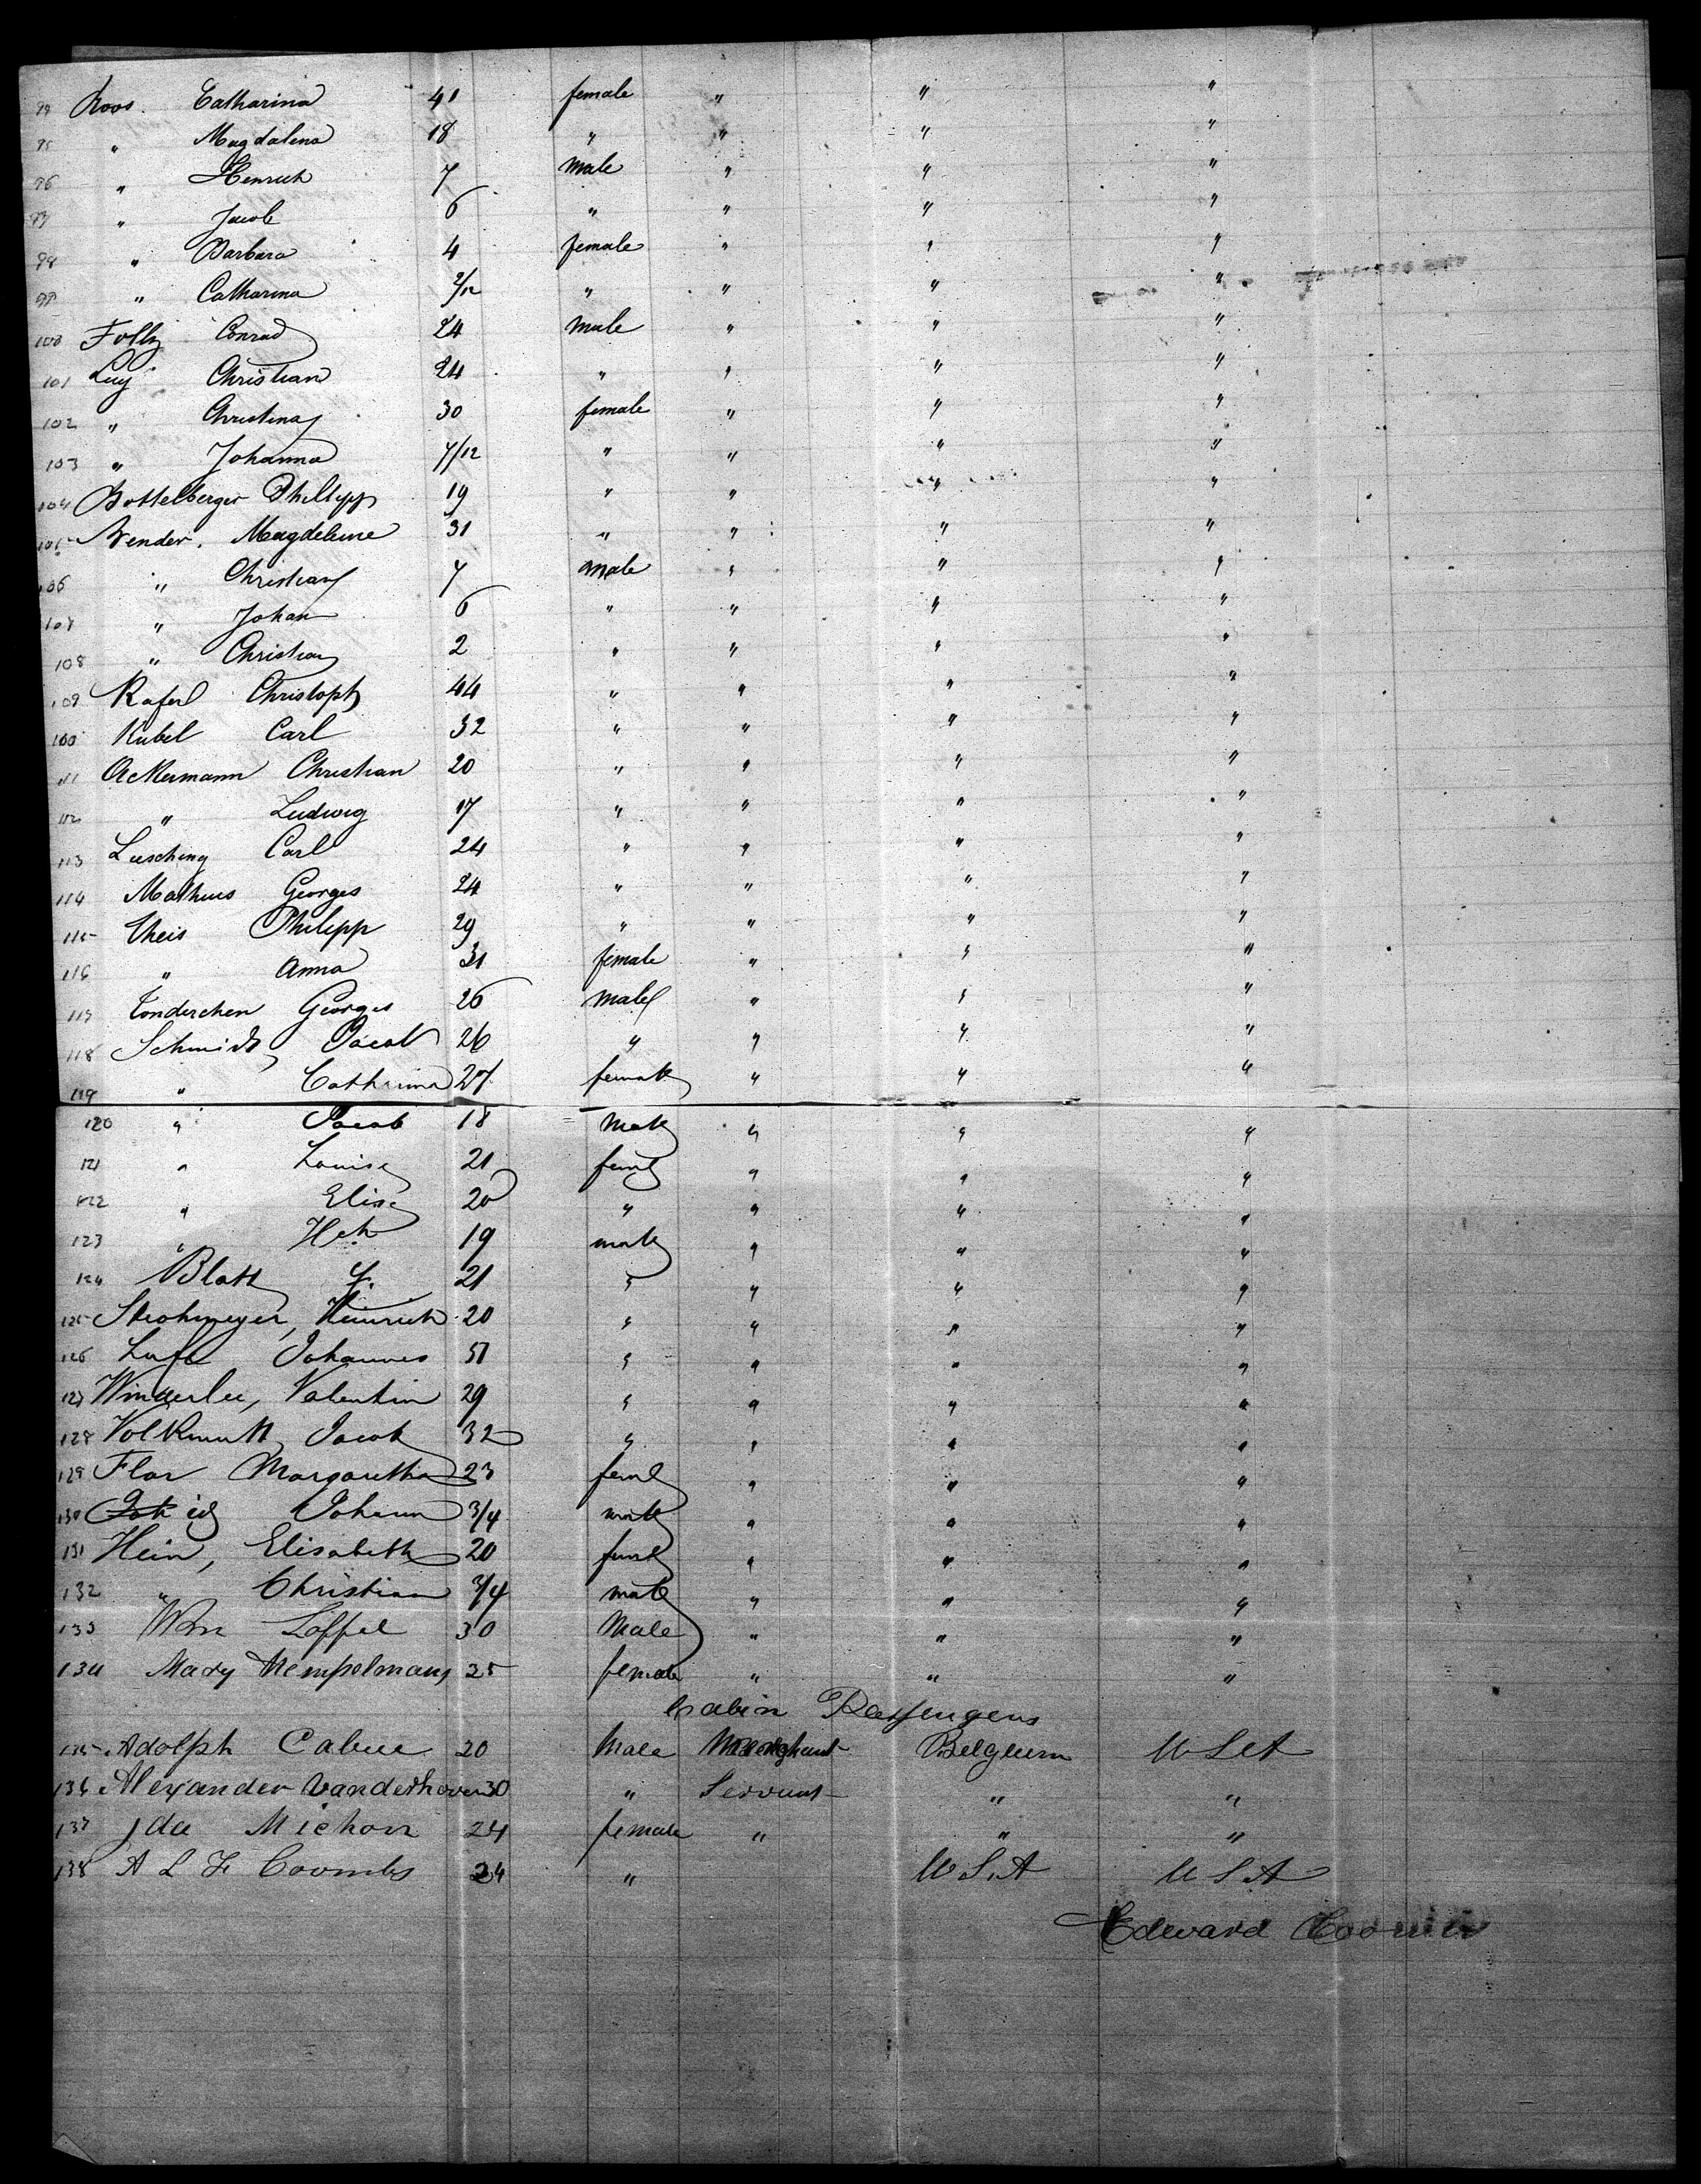 94 Roos Catharina 41 female " " "
95 " Magdalena 18 " " " "
96 " Henrich 7 male " " "
97 " Jacob 6 " " " "
98 " Barbara 4 female " " "
99 " Catharina " " " "
100 Folly Conrad 24 male " " "
101 Luy Christian 24 " " " "
102 " Christina 30 female " " "
103 " Johanna 7/12 " " " "
104 Bottelberger Philipp 19 " " " "
105 Bender. Magdeleine 31 " " " "
106 " Christian 7 male " " "
107 " Johan 6 " " " "
108 " Christian 2 " " " "
109 Christoph 44 " " " "
110 Kubel Carl 32 " " " "
111 Ackermann Christian 20 " " " "
112 " Ludwig 17 " " " "
113 Carl 24 " " " "
114 Mathius Georges 24 " " " "
115 Theis Philipp 29 " " " "
116 " Anna 31 female " " "
117 Tonderchen Georges 26 male " " "
118 Schmidt, Jacob 26 " " " "
119 " Catharina 27 female " " "
120 " Jacob 18 male " " "
121 " Louise 21 feml " " "
122 " Elise 20 " " " "
123 " Hch 19 male " " "
124 Blatt 21 " " " "
125 Strohmeyer, Heinrich 20 " " " "
126 Luft Johannes 51 " " " "
127 Winderlee, Valentin 29 " " " "
128 Volkmutt Jacob 32 " " " "
129 Flor Margaretha 23 feml " " "
130 Johann 3/4 male " " "
131 Hein, Elisabeth 20 feml " " "
132 " Christian 3/4 male " " "
133 Wm Löffel 30 Male " " "
134 Mary Hempelmany 25 female " " "
Cabin Passengers
135 Adolph Calue 20 Male Merchant Belgium USA
136 Alexander Vanderhoven 30 " Servant " "
137 Ida Michon 24 female " " "
138 A L F Coombs 24 " U S.A U S A
Edward Coombs